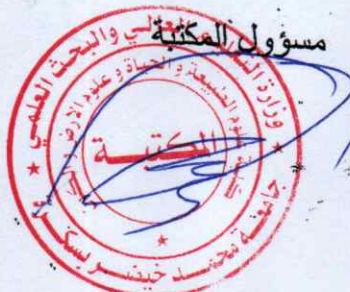 مسؤول المكتبة
وزارة التعليم العالي والبحث العلمي
علوم الطبيعة و الحياة و علوم الأرض
المكتبة
جامعة محمد خيضر بسكرة